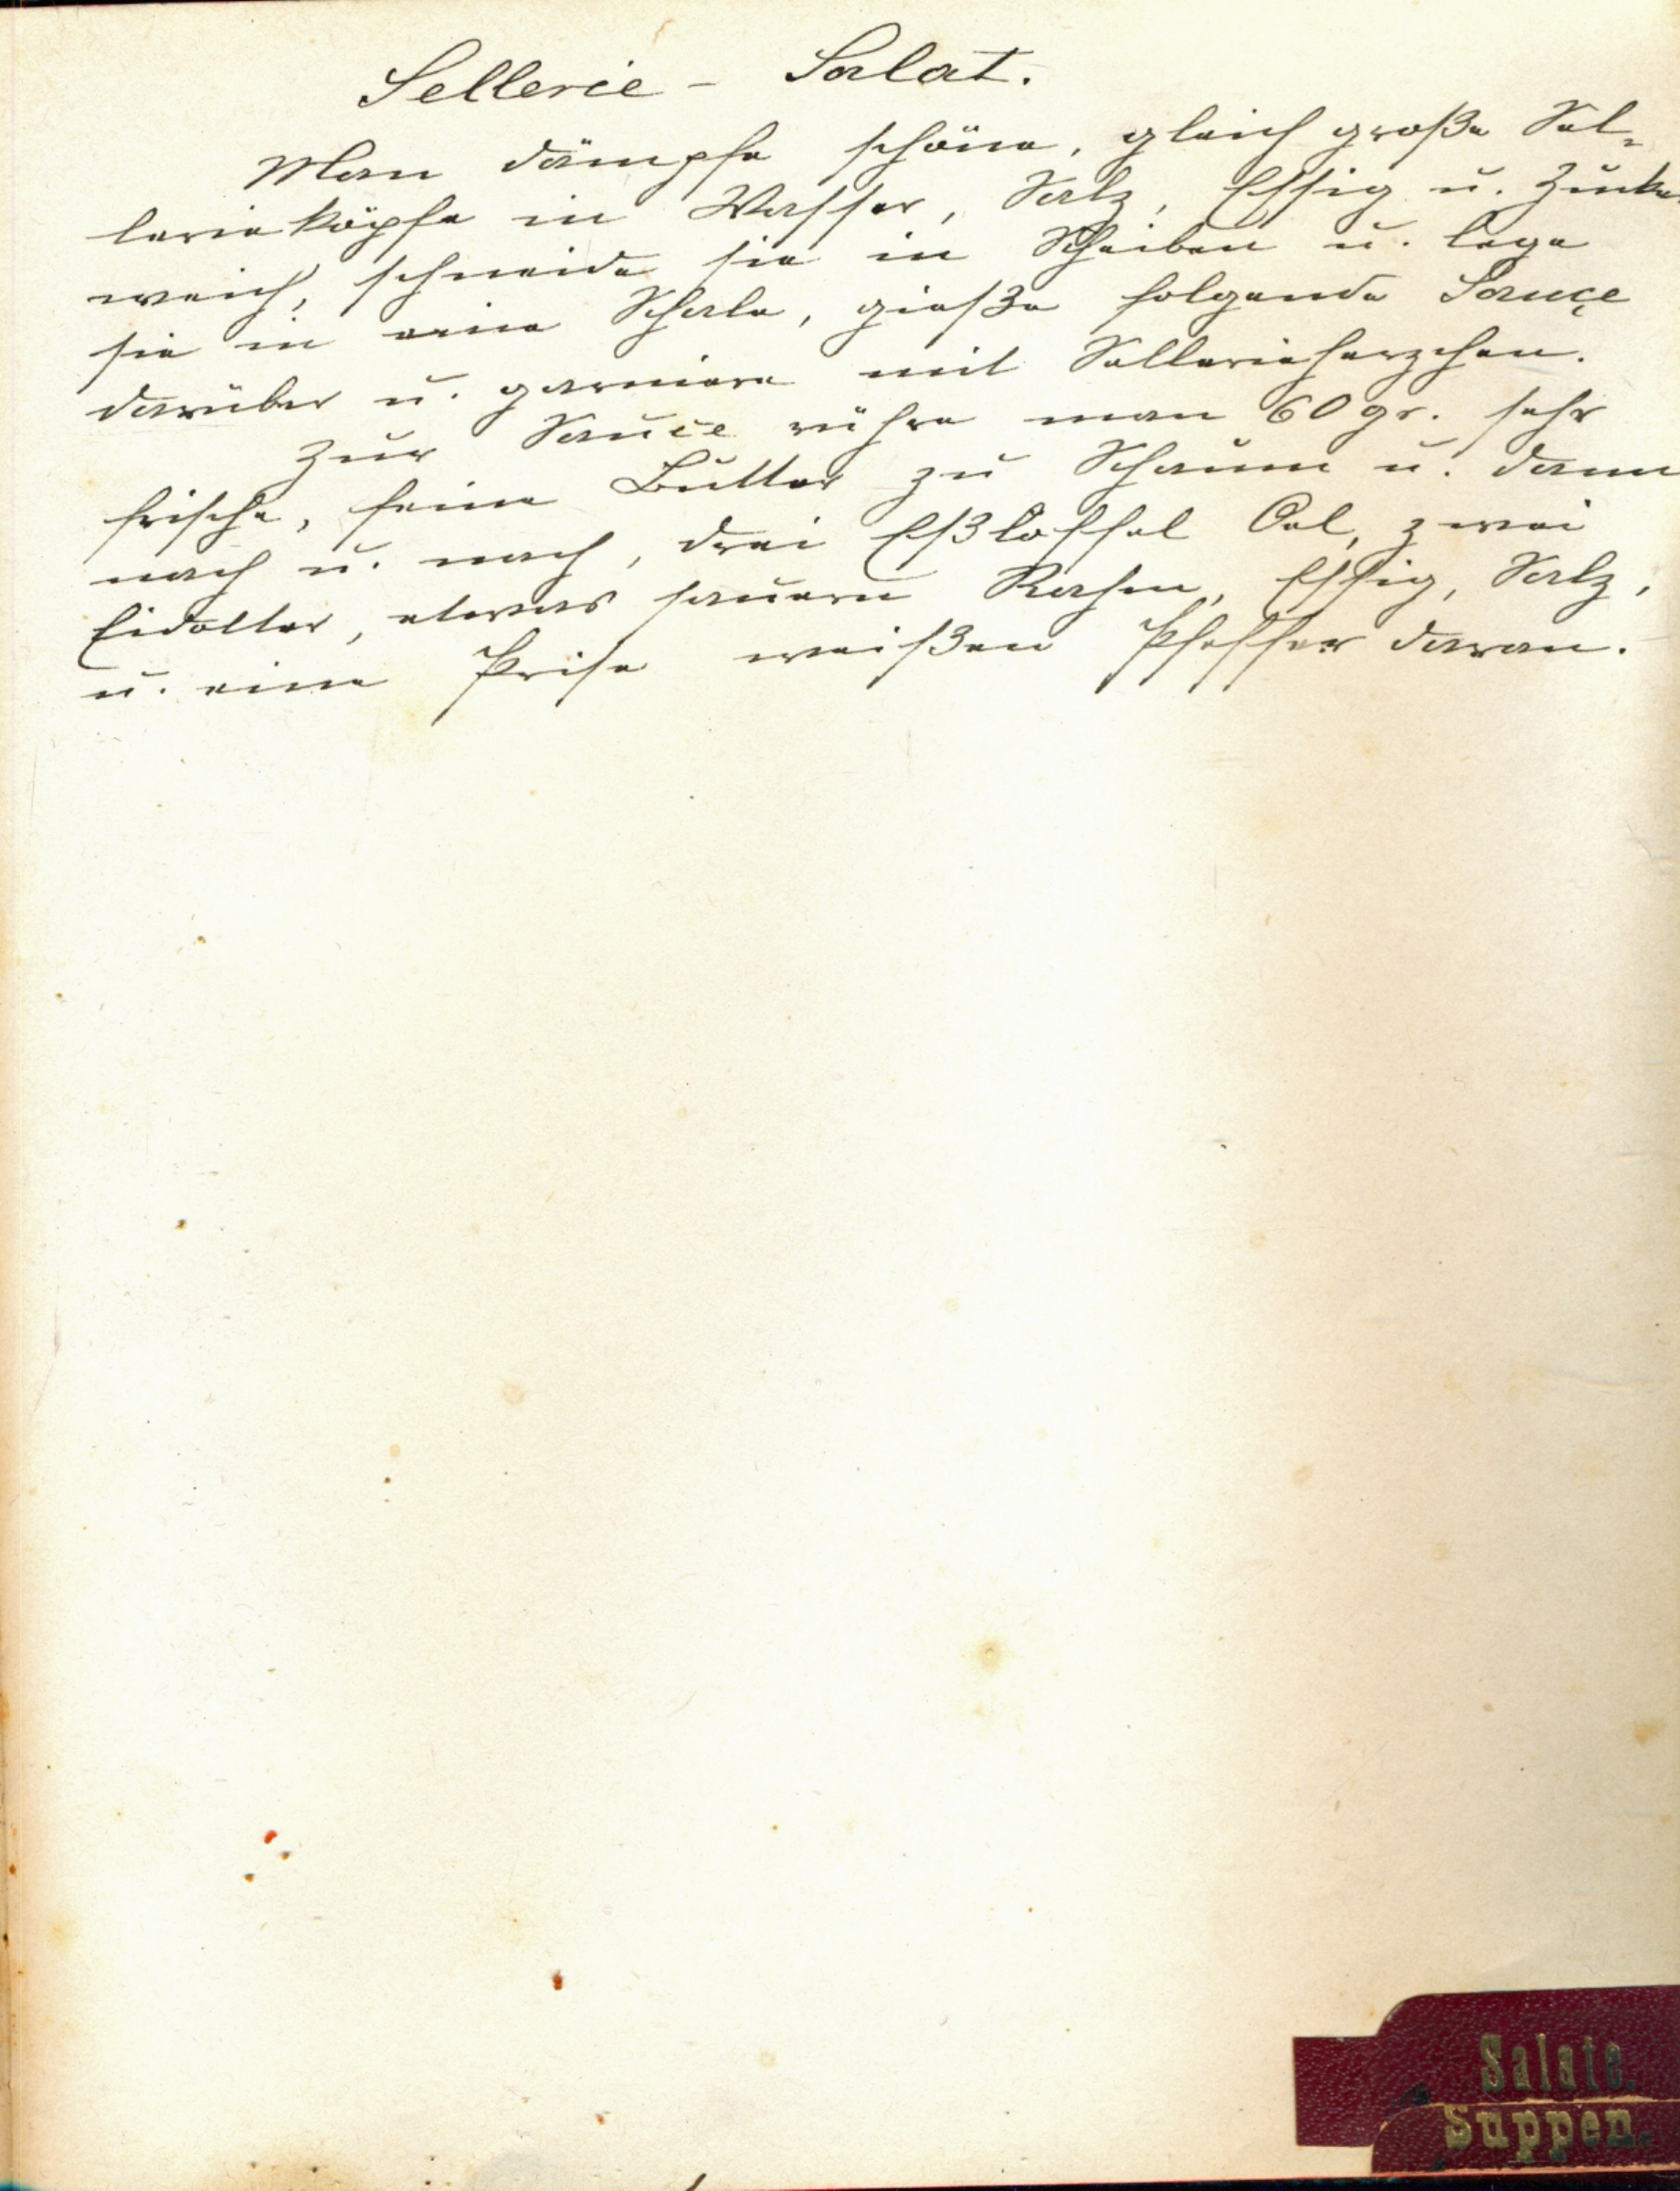 Sellerie - Salat.
Man dämpfe schöne, gleich große Sel-
lerieköpfe in Wasser, Salz, Essig u. Zucker
weich, schneide sie in Scheiben u. lege
sie in eine Schale, gieße folgende Sauçe
darüber u. garniere mit Sellerieherzchen.
Zur Sauce rühre man 60 gr. sehr
frische, feine Butter zu Schaum u. dann
nach u. nach, drei Eßlöffel Oel, zwei
Eidotter, etwas sauern Rahm, Essig, Salz,
u. eine Prise weißen Pfeffer daran.
Salate.
Suppen.